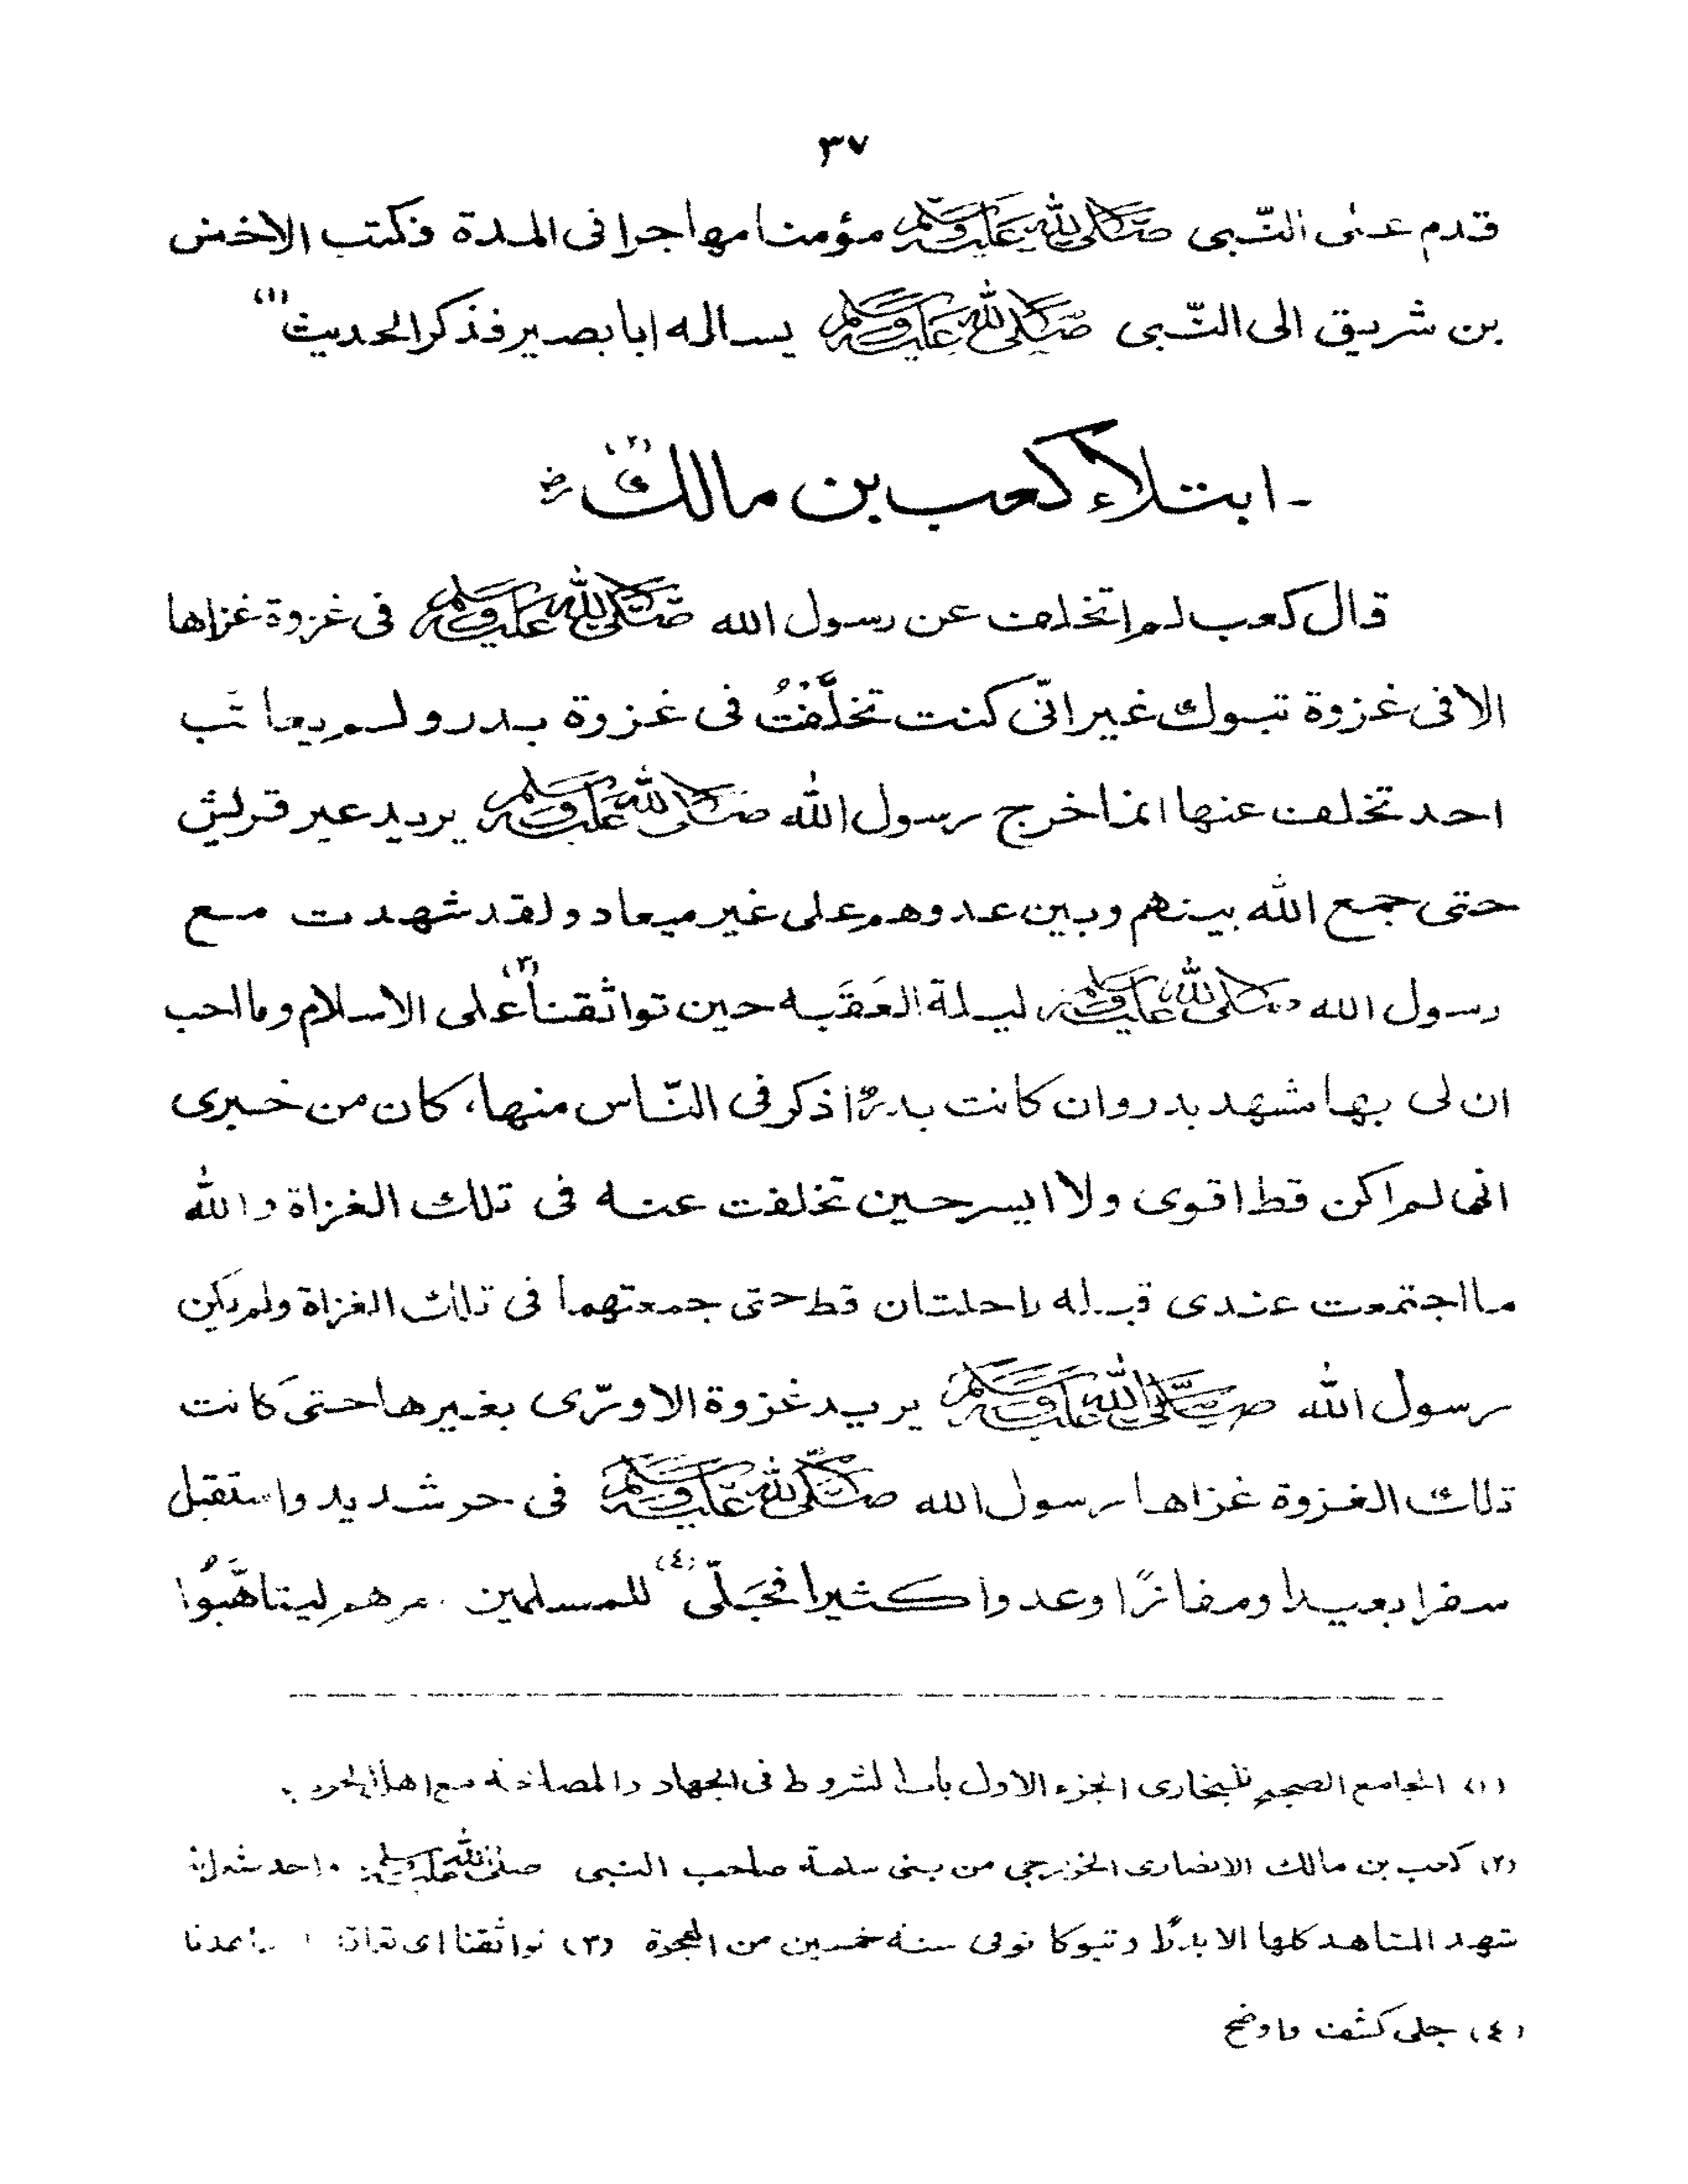 ٣٧
قدم على النّبى ﷺ مؤمنا مهاجرا فى المدة فكتب الاخنس
بن شريق الى النّبى ﷺ يساله ابا بصير فذكر الحديث (١)
ـ ابتلاء كعب بن مالك (٢) رض
قال كعب لم اتخلف عن رسول الله ﷺ فى غزوة غزاها
الا فى غزوة تبوك غير انّى كنت تخلَّفْتُ فى غزوة بدر ولم يعاتب
احد تخلف عنها انما خرج رسول الله ﷺ يريد عير قريش
حتى جمع الله بينهم وبين عدوهم على غير ميعاد ولقد شهدت مع
رسول الله ﷺ ليلة العَقَبه حين تواثقنا (٣) على الاسلام وما احب
ان لى بها مشهد بدر وان كانت بدرٌ اذكر فى النّاس منها، كان من خبرى
انى لم اكن قط اقوى ولا ايسر حين تخلفت عنه فى تلك الغزاة والله
ما اجتمعت عندى قبله راحلتان قط حتى جمعتهما فى تلك الغزاة ولم يكن
رسول الله ﷺ يريد غزوة الا ورّى بغيرها حتى كانت
تلك الغزوة غزاها رسول الله ﷺ فى حر شديد واستقبل
سفرا بعيدا ومفازًا وعدوا كثيرا فجَلّى (٤) للمسلمين مرهم ليتاهَّبُوا
(١) الجامع الصحيح للبخارى الجزء الاول باب الشروط فى الجهاد والمصالحة مع اهل الحرب
(٢) كعب بن مالك الانصارى الخزرجى من بنى سلمة صاحب النبى ﷺ واحد شعرائه
شهد المشاهد كلها الا بدرًا وتبوكا توفى سنة خمسين من الهجرة (٣) تواثقنا اى
(٤) جلى كشف واوضح